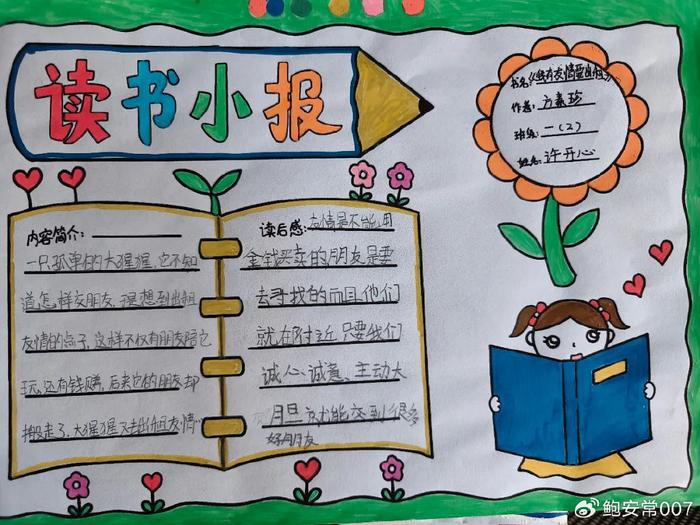 读书小报
书名:《我有友情要出租》
作者:方素珍
班级:一(2)
姓名:许开心
内容简介:
一只孤单的大猩猩,它不知
道怎样交朋友,
想到出租
友情的点子,这样不仅有朋友陪它
玩,还有钱赚,后来它的朋友却
搬走了,大猩猩又去出租友情
读后感:友情是不能用
金钱买卖的,朋友是要
去寻找的而且他们
就在附近,只要我们
诚心、诚意、主动大
就能交到很多
好朋友
鲍安常007